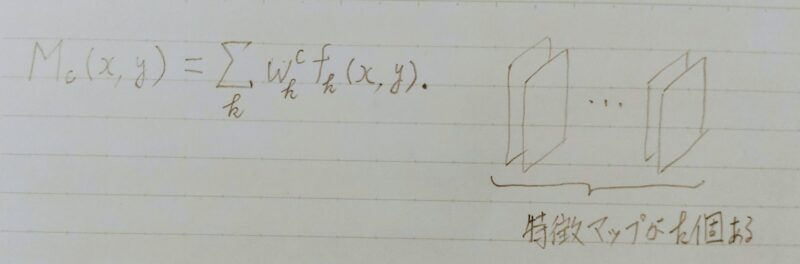 M_c(x, y) = Σ_k w_k^c f_k(x, y).
...
特徴マップがk個ある